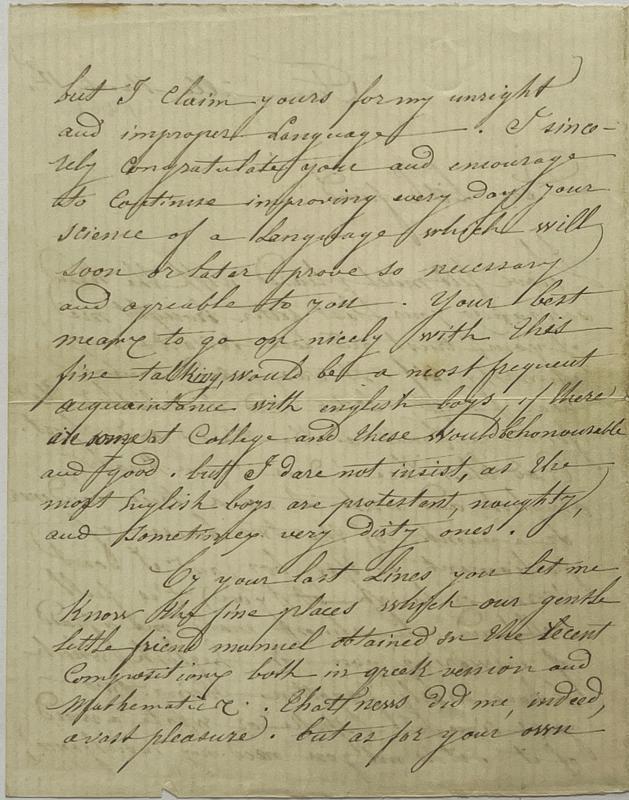 but I Claim yours for my unright
and improper Language. I since-
rely Congratulate you and encourage
to Continue improving every day your
science of a Language which will
soon or later prove so necessary
and agreable to you. Your best
means to go on nicely with this
fine talking, would be a most frequent
acquaintance with english boys, if there
are some at College and these would be honourable
and good. but I dare not insist, as the
most English boys are protestant, naughty,
and sometimes very dirty ones.
By your last Lines you let me
Know the fine places which our gentle
little friend manuel obtained in the recent
Compositions both in greek version and
Mathematics. That news did me, indeed,
a vast pleasure. but as for your own